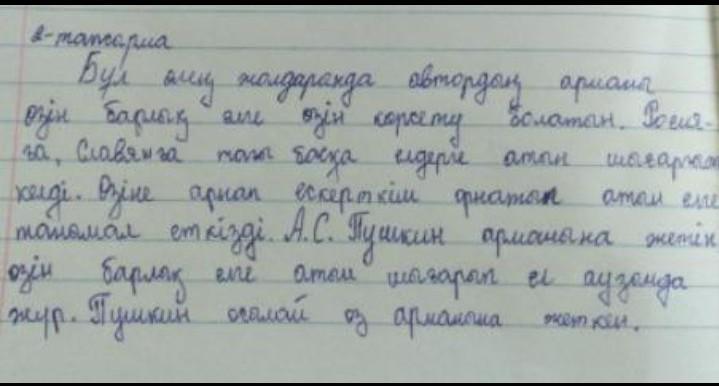 2-тапсырма
Бұл өлең жолдарында автордың арманы
өзін барлық елге өзін көрсету болатын. Росия-
ға, Славянға тағы басқа елдерге атын шығарғысы
келді. Өзіне арнап ескерткіш орнатып атын елге
танымал еткізді. А.С. Пушкин арманына жетіп
өзін барлық елге атын шығарып ел аузында
жүр. Пушкин осылай өз арманына жеткен.